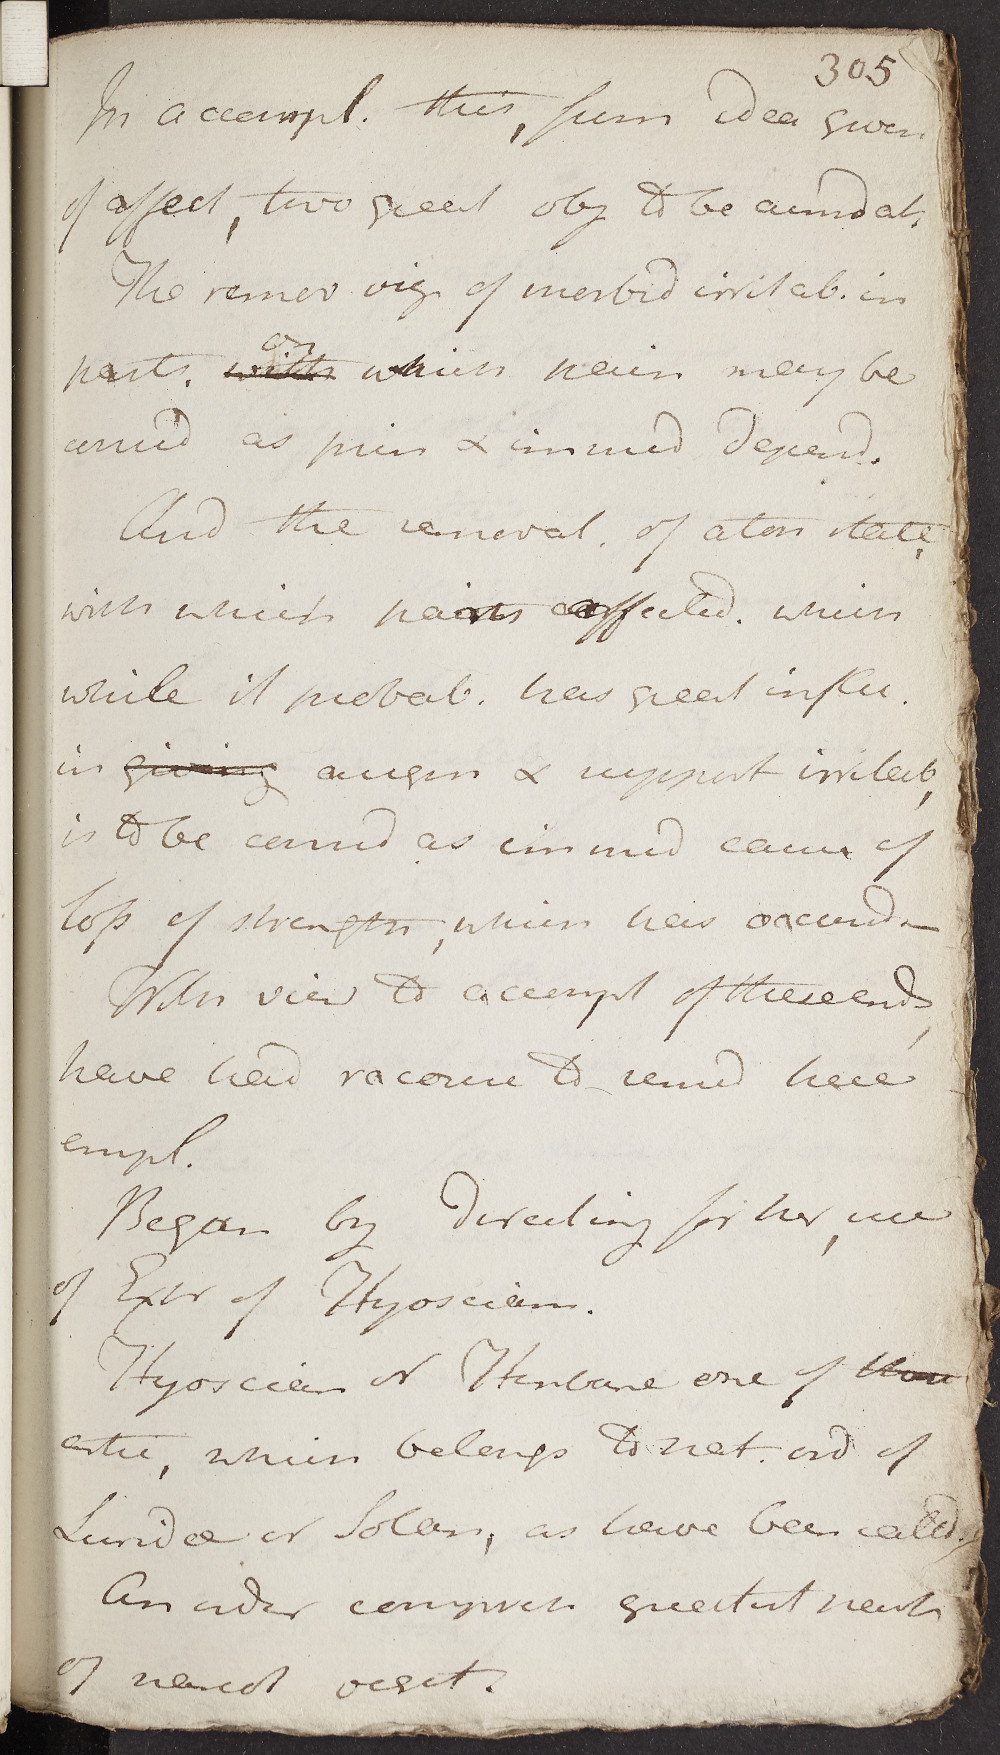 305
In accompl. this, from idea given
of affect, two great obj to be aimd at.
The remov vig of morbid irritab. in
parts. with on which pain may be
consid as prim & immed depend.
And the removal. of aton state,
with which parts affected. which
while it probab. has great influ.
in giving augm & support irritab,
is to be consid as immed cause of
loss of strength, which has occurrd
With view to accompl of these ends,
have had recourse to remed here
empl.
Began by directing for her, use
of Extr of Hyosciam.
Hyosciam or Henbane one of those
artic, which belongs to nat. ord of
Luridæ or Solan, as have been calld.
An order comprish greatest numb
of narcot veget.